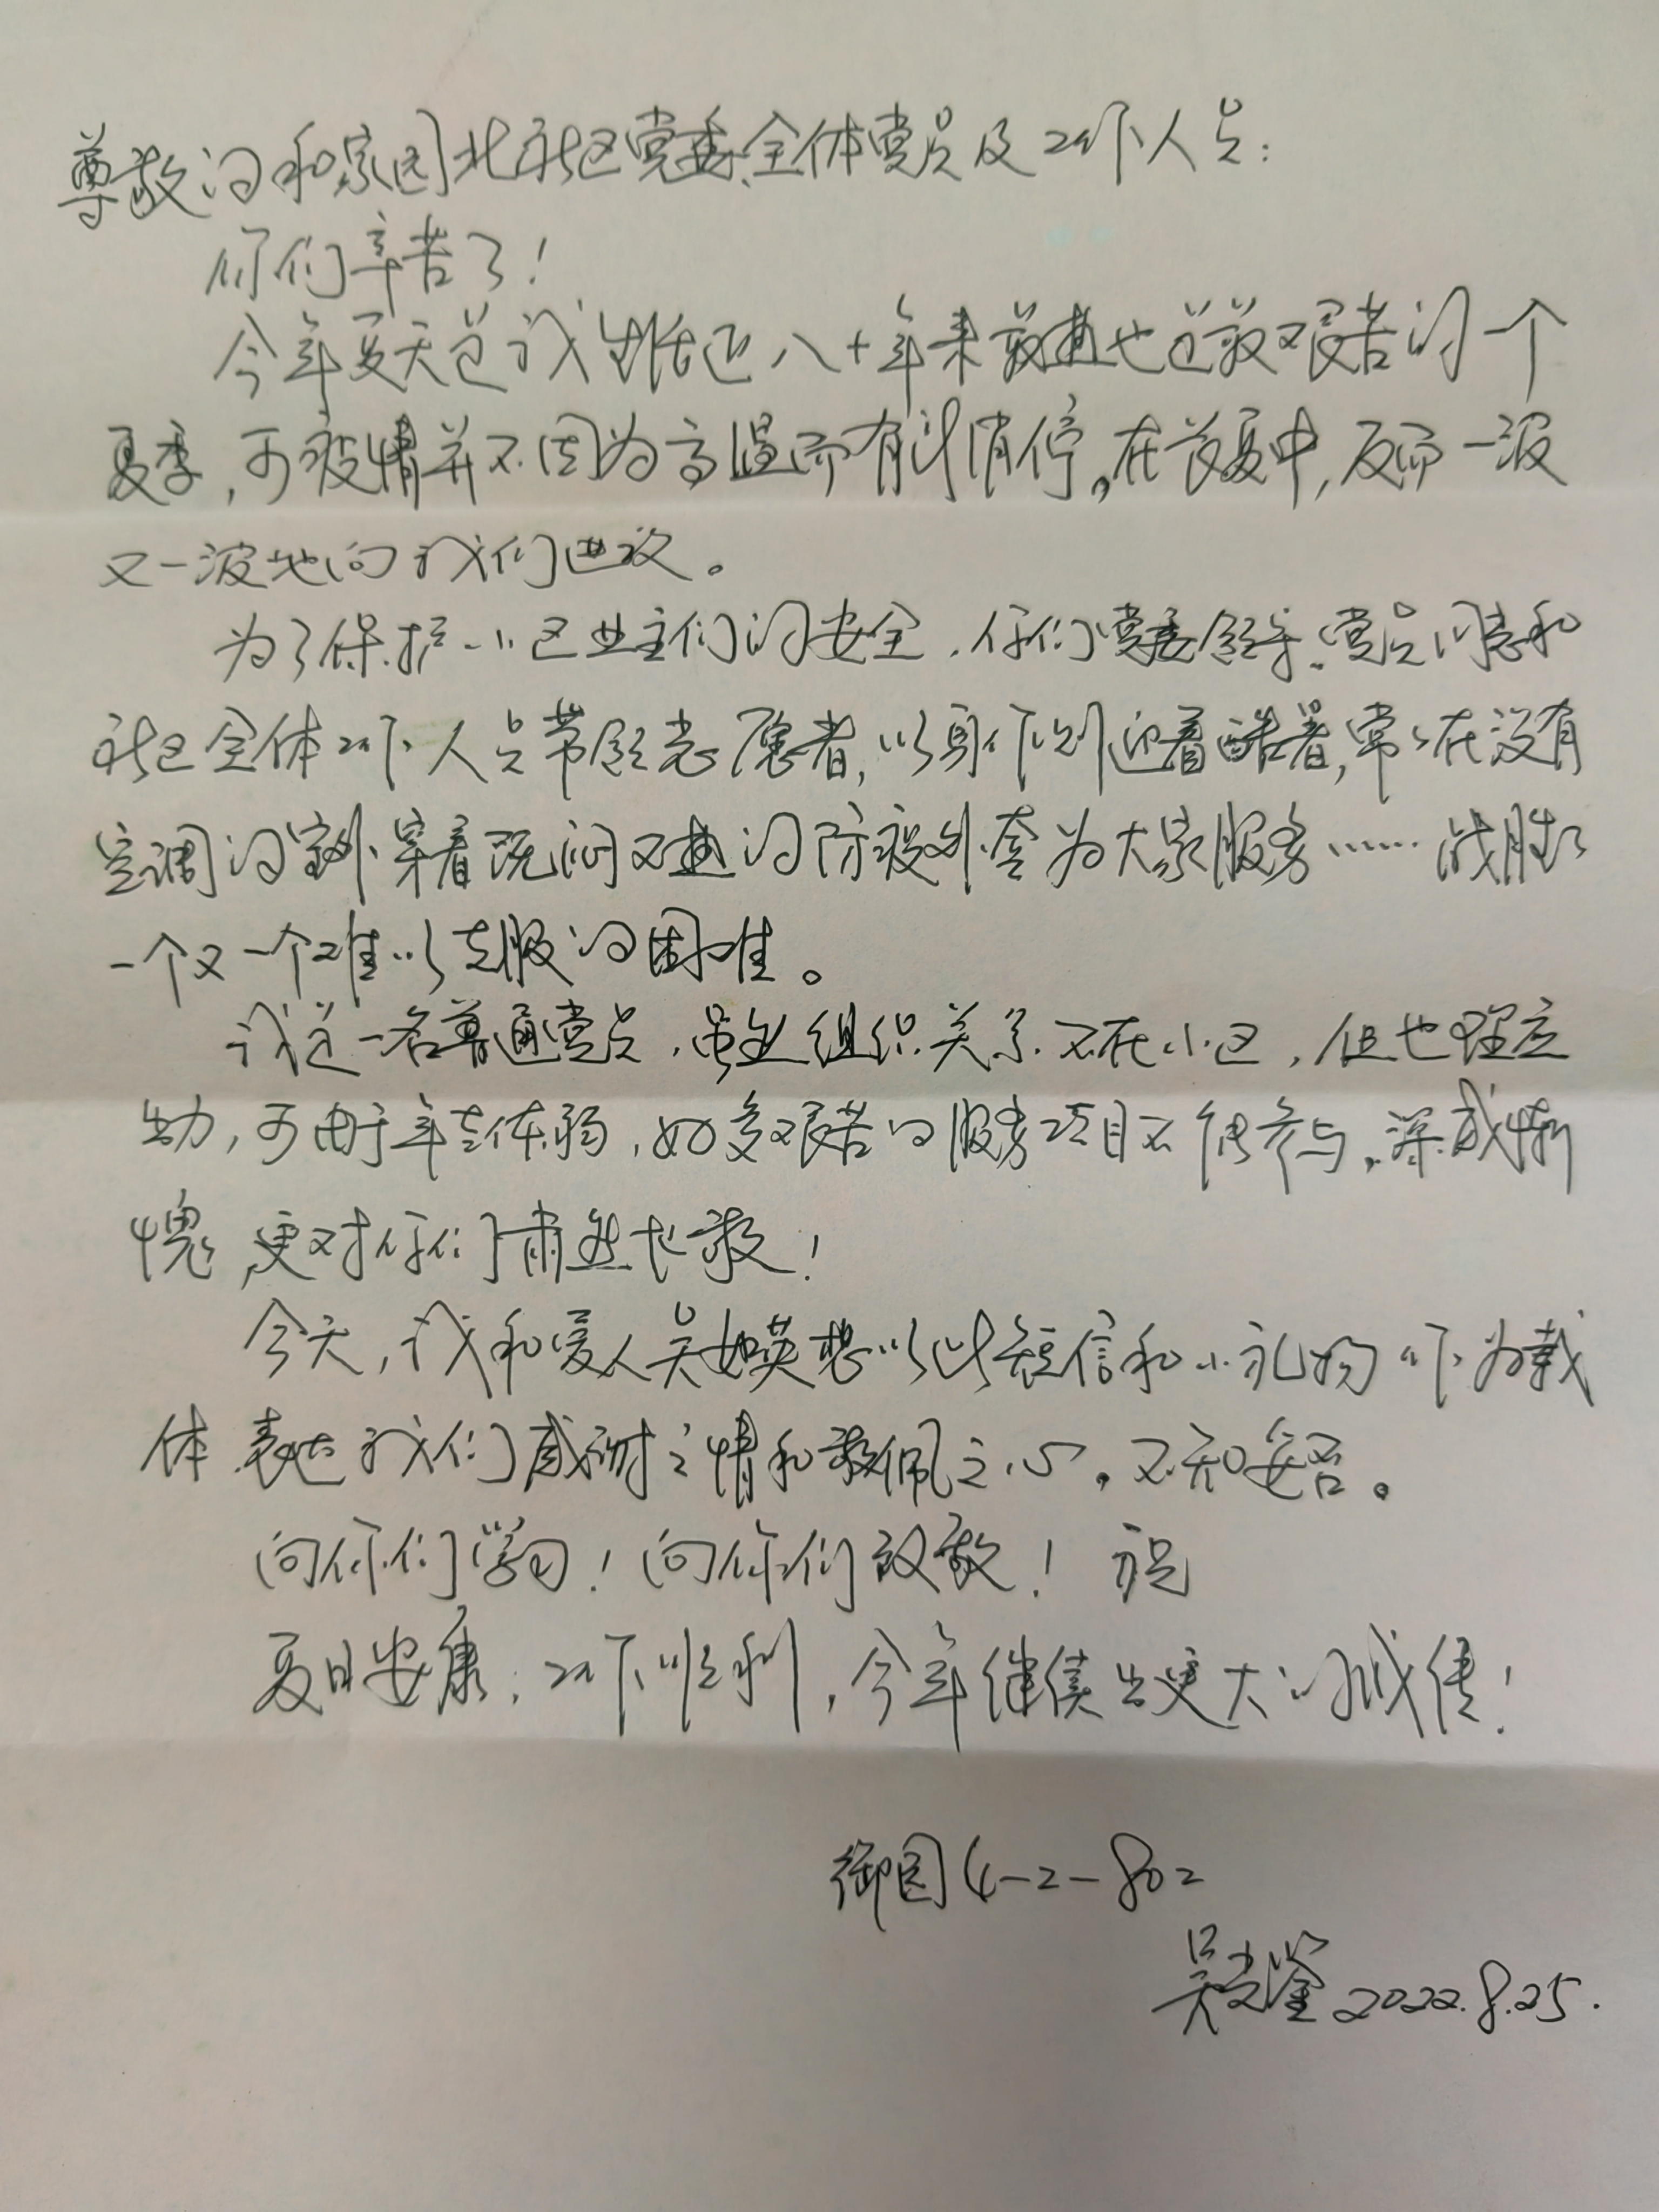 尊敬的和家园北社区党委、全体党员及工作人员：
你们辛苦了！
今年夏天是我生活近八十年来最热也是最艰苦的一个
夏季，可疫情并不因为高温而有所消停。在首夏中，反而一波
又一波地向我们进攻。
为了保护小区业主们的安全，你们党委领导、党员同志和
社区全体工作人员带领志愿者，以身作则迎着酷暑，常常在没有
空调的室外穿着既闷又热的防疫外套为大家服务……战胜了
一个又一个难以克服的困难。
我是一名普通党员，虽然组织关系不在小区，但也理应
出力，可由于年老体弱，如多艰苦的服务项目不能参与，深感惭
愧，更对你们肃然起敬！
今天，我和爱人吴如英想以此短信和小礼物作为载
体表达我们感谢之情和敬佩之心，不知妥否。
向你们学习！向你们致敬！祝
夏日安康，工作顺利，今年继续出更大的成绩！
御园4-2-802
吴文鉴 2022.8.25.